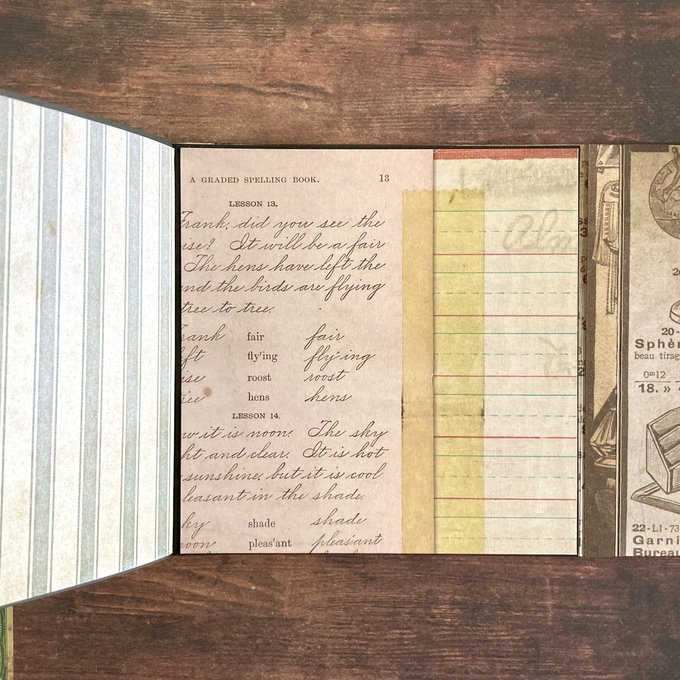 A GRADED SPELLING BOOK. 13
LESSON 13.
Frank, did you see the
ise? It will be a fair
The hens have left the
nd the birds are flying
tree to tree.
rank fair fair
ft fly'ing fly'ing
ise roost roost
ree hens hens
LESSON 14.
w it is noon. The sky
ht and clear. It is hot
sunshine, but it is cool
leasant in the shade.
ky shade shade
oon pleas'ant pleasant
20-
Sphèr
beau tirag
0m12
18. »
22-LI-73
Garni
Bureau